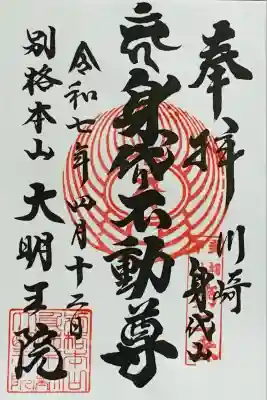 奉拝
川崎
身代山
身代不動尊
令和七年四月十二日
別格本山
大明王院